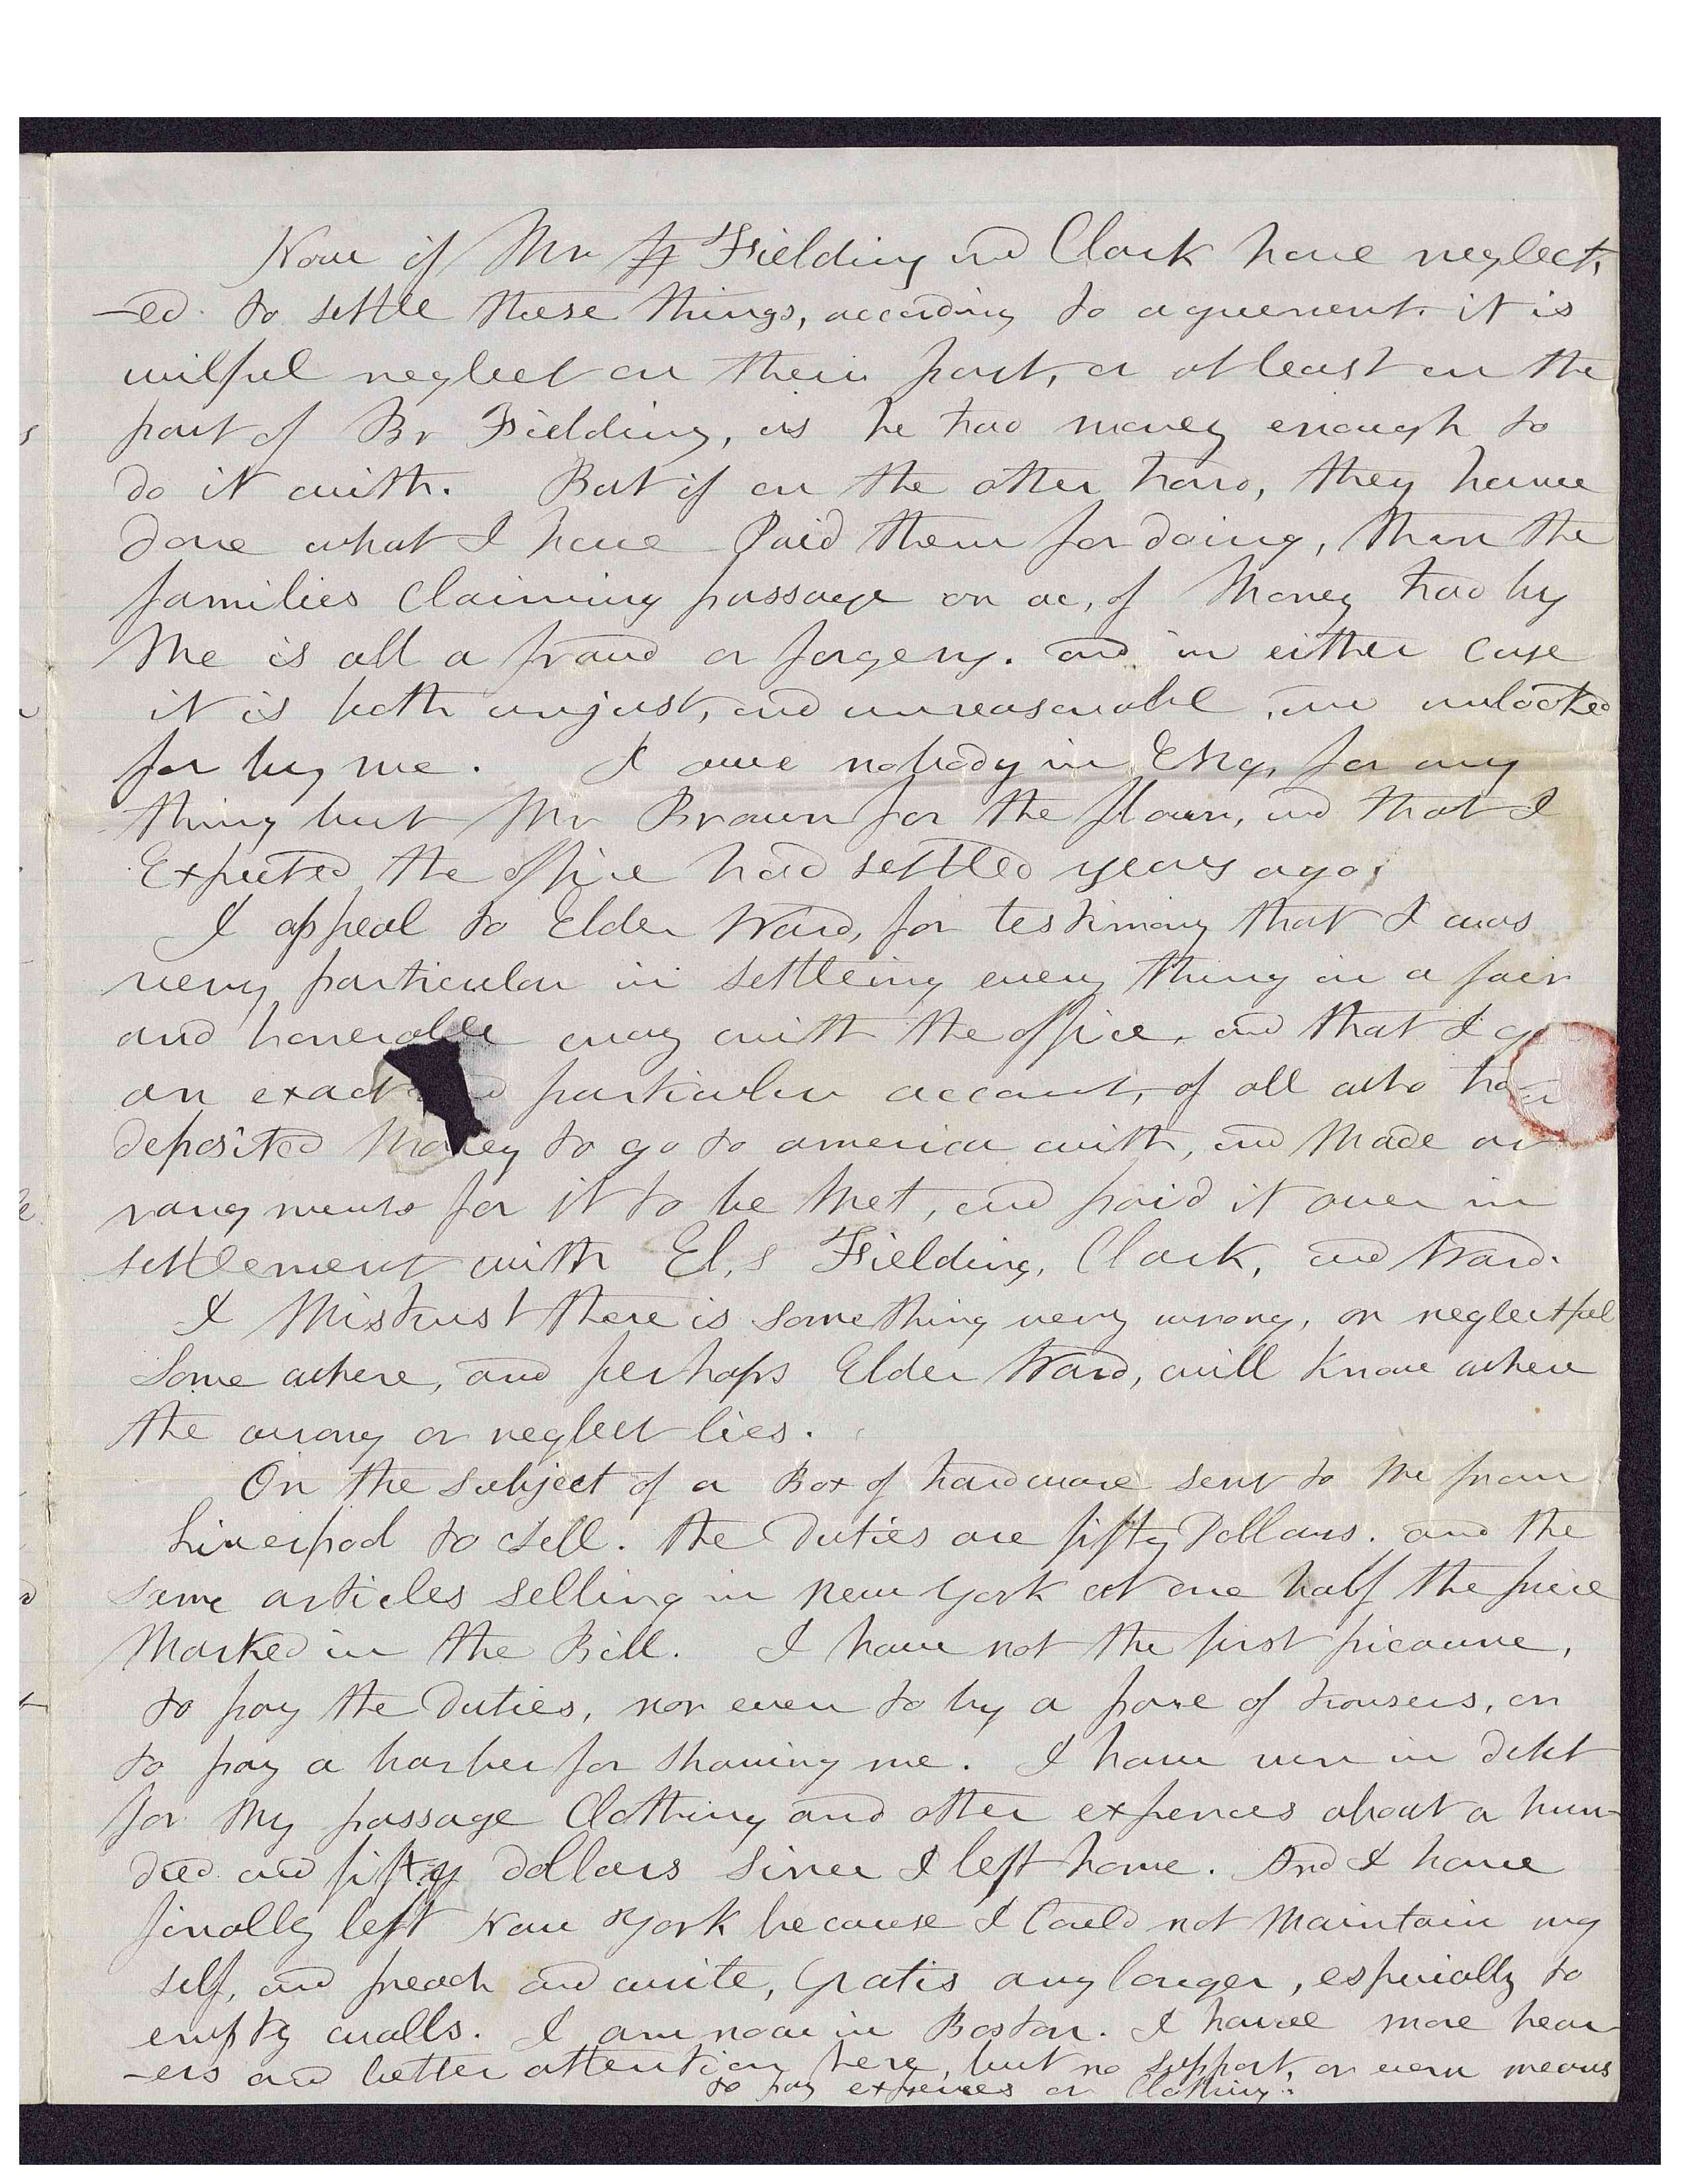 Now if Mr Fielding and Clark have neglect
-ed to settle these things, according to agreement. it is
wilful neglect on their part, or at least on the
part of Br Fielding, as he had money enough to
do it with. But if on the other hand, they have
done what I have Paid them for doing, then the
families Claiming passage on ac, of Money had by
Me is all a fraud or forgery. and in either case
it is both unjust, and unreasonable, and unlooked
for by me. I owe nobody in Eng, for any
thing but Mr Brown for the flour, and that I
Expected the office had settled years ago.
I appeal to Elder Ward, for testimony that I was
very particular in settleing every thing in a fair
and honerable way with the office, and that I
an exact particular account, of all who had
deposited Money to go to america with, and Made ar
rangments for it to be Met, and paid it over in
settlement with El,s Fielding, Clark, and Ward.
I Mistrust there is something very wrong, or neglectful
Some where, and perhaps Elder Ward, will know where
the wrong or neglect lies.
On the subject of a Box of hardware sent to Me from
Liverpool to sell. the Duties are fifty Dollars. and the
same articles selling in New York at one half the price
Marked in the Bill. I have not the first picaune,
to pay the Duties, nor even to by a pare of trousers, or
to pay a barber for shaving me. I have run in debt
for My passage Clothing and other expences about a hun-
dred and fifty dollars since I left home. And I have
finally left New York because I Could not Maintain my
self, and preach and write, Gratis any longer, especially to
empty walls. I am now in Boston. I have more hear
-ers and better attention here, but no support, or even means
to pay expences or Clothing.